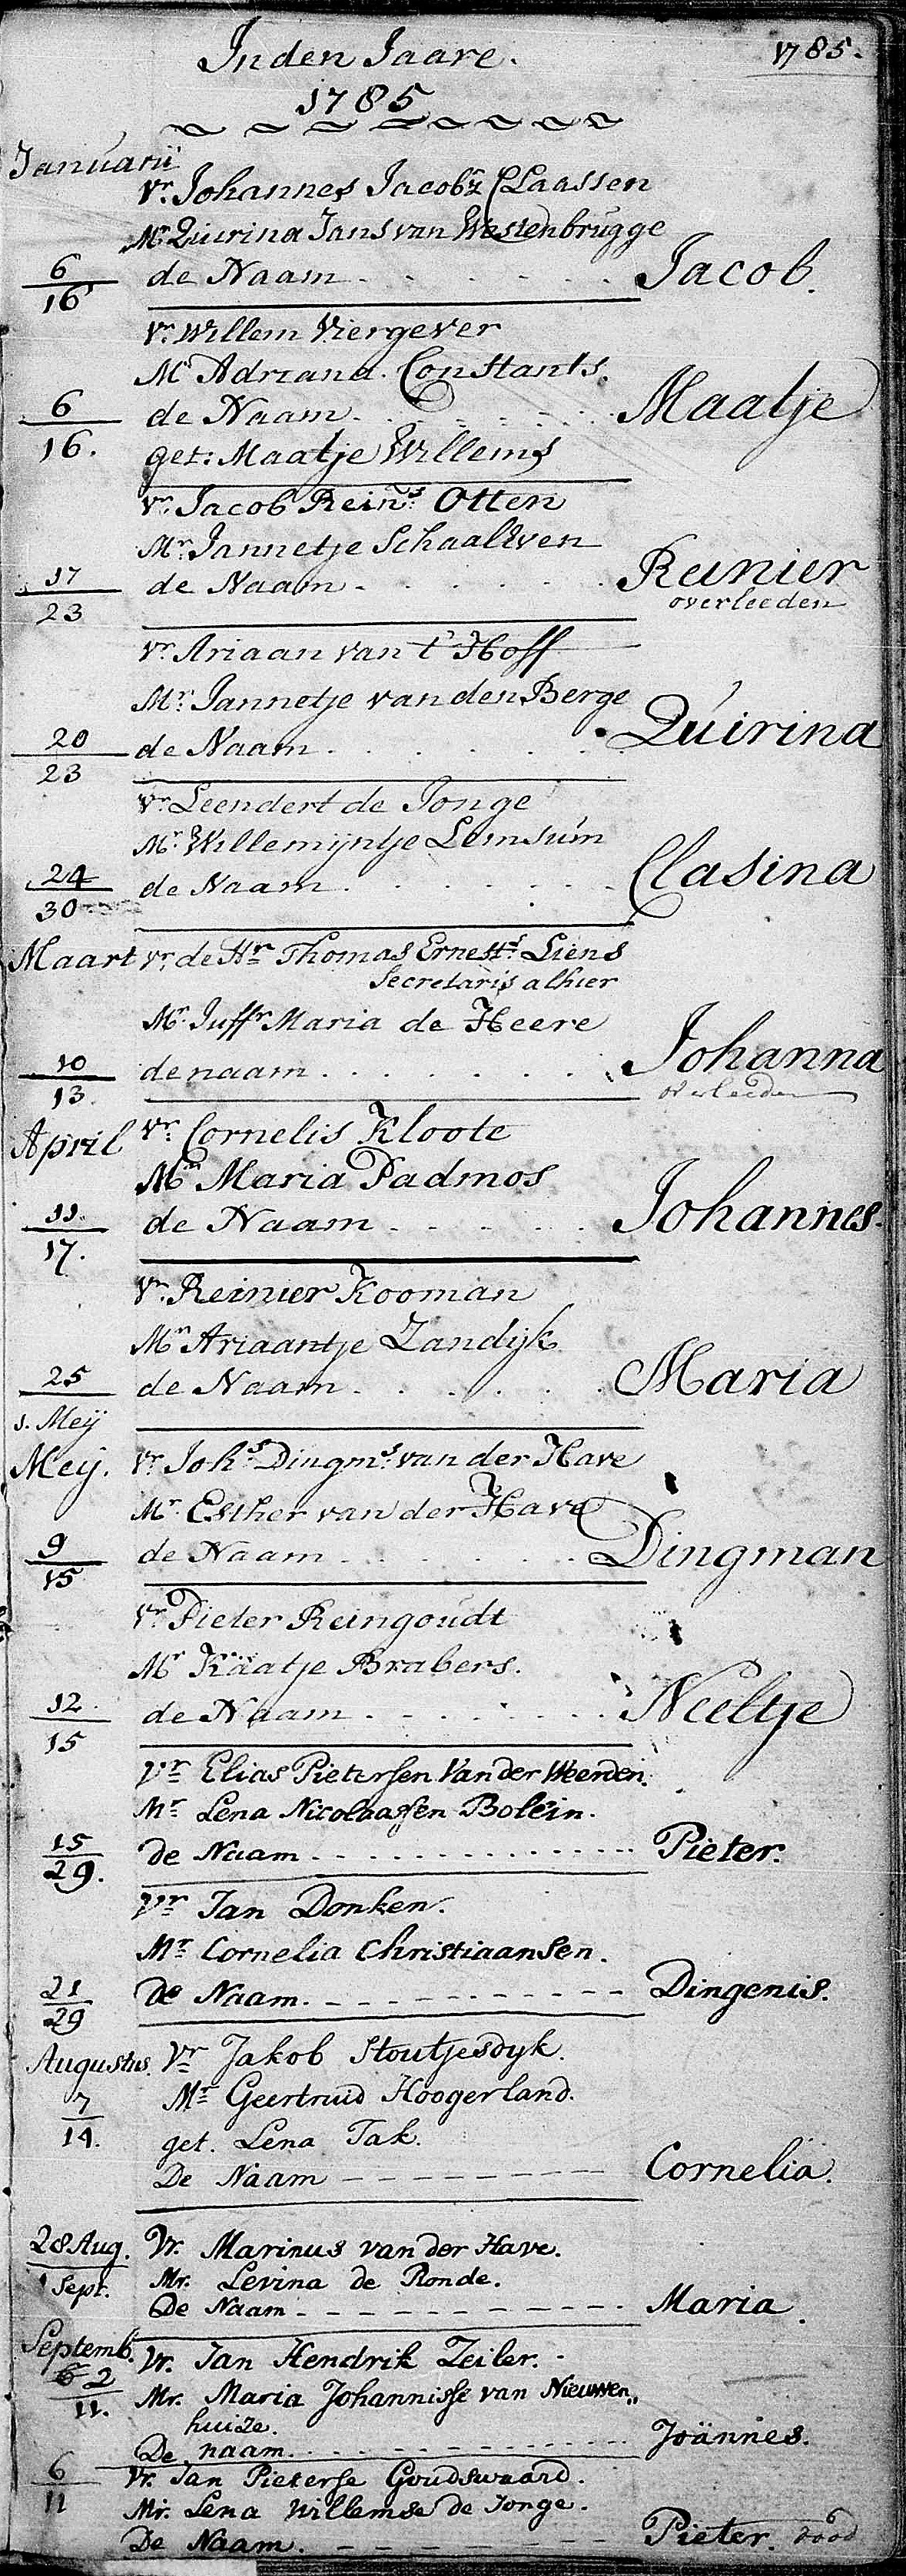 In den Jaare. 1785.
1785
Januarij
Vr. Johannes Jacobz Claassen
Mr. Quirina Jans van Westenbrugge
6/16 de Naam . . . . . . Jacob.
Vr. Willem Viergever
Mr Adriana. Constants.
6/16. de Naam . . . . . . Maatje
get: Maatje Willems
Vr. Jacob Reins. Otten
Mr. Jannetje Schaalwen
17/23 de Naam . . . . . . Reinier
overleeden
Vr. Ariaan van t' Hoff
Mr. Jannetje van den Berge
20/23 de Naam . . . . . . Quirina
Vr. Leendert de Jonge
Mr. Willemijntje Lemsum
24/30 de Naam . . . . . . Clasina
Maart Vr. de Hr. Thomas Ernests. Liens
Secretaris alhier
Mr. Juffr Maria de Heere
10/13. de naam . . . . . . Johanna
overleeden
April Vr. Cornelis Kloote
Mr. Maria Padmos
11/17. de Naam . . . . . . Johannes.
Vr. Reinier Kooman
Mr Ariaantje Zandijk
25/1. Meij de Naam . . . . . . Maria
Meij. Vr. Johs. Dingms. van der Have
Mr. Esther van der Have
9/15 de Naam . . . . . . Dingman
Vr. Pieter Reingoudt
Mr Kaatje Brabers.
12/15 de Naam . . . . . . Neeltje
Vr. Elias Pietersen Van der Weerden.
Mr. Lena Nicolaassen Bolein.
15/29. de Naam . . . . . . Pieter.
Vr Jan Donken.
Mr. Cornelia Christiaansen.
21/29 De Naam. . . . . . . Dingenis.
Augustus. Vr. Jakob Stoutjesdyk.
7/14. Mr. Geertruid Hoogerland.
get. Lena Tak.
De Naam - - - - - - Cornelia.
28 Aug. Vr. Marinus van der Have.
1 Sept. Mr. Levina de Ronde.
De Naam - - - - - - Maria.
Septemb. Vr. Jan Hendrik Zeiler.
2/11. Mr. Maria Johannisse van Nieuwen„
huize.
De naam. . . . . . . Joännes.
6/11 Vr. Jan Pieterse Goudswaard.
Mr. Lena Willemse de Jonge.
De Naam. - - - - - - Pieter. dood